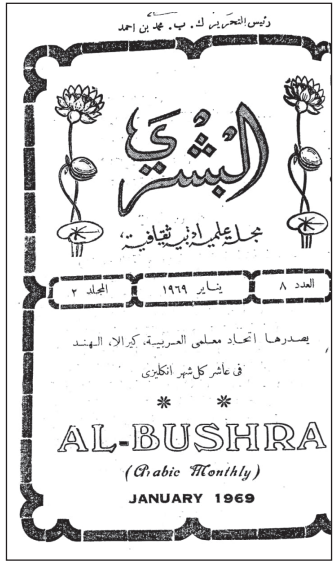 رئيس التحرير ك. ب. محمد بن احمد
البشرى
مجلة علمية أدبية ثقافية
العدد ٨ يناير ١٩٦٩ المجلد ٢
يصدرها اتحاد معلمى العربية، كيرالا، الهند
فى عاشر كل شهر انكليزى
* *
AL-BUSHRA
(Arabic Monthly)
JANUARY 1969